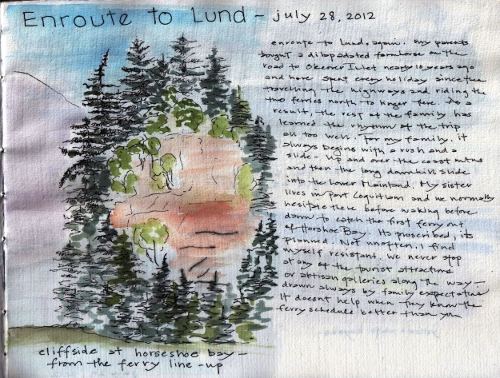 Enroute to Lund - july 28, 2012
enroute to Lund, again. my parents
bought a dilapidated farmhouse on the
road to Okeover Inlet nearly 10 years ago
and have spent every holiday since then
travelling the highways and riding the
two ferries north to linger there. As a
result, the rest of the family has
learned the rhythm of the trip
all too well. For my family, it
always begins with a rush and a
slide up and over the coast mtns
and then the long downhill slide
into the Lower Mainland. My sister
lives in Port Coquitlam and we normally
there before waking before
dawn to catch the first ferry out
of Horshoe Bay. Its practised, its
planned. Not unoften, I find
myself resistant. we never stop
at any of the tourist attractions
or artisan galleries along the way -
drawn always by family expectation
It doesnt help when they know the
ferry schedule better than you
cliffside at horseshoe bay -
from the ferry line-up